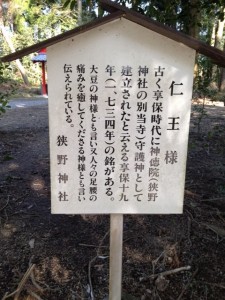 仁王様
古く享保時代に神徳院（狭野
神社の別当寺）守護神として
建立されたと云える享保十九
年（一、七三四年）の銘がある。
大豆の神様とも言い又人々の足腰の
痛みを癒してくださる神様とも言い
伝えられている。
狭野神社